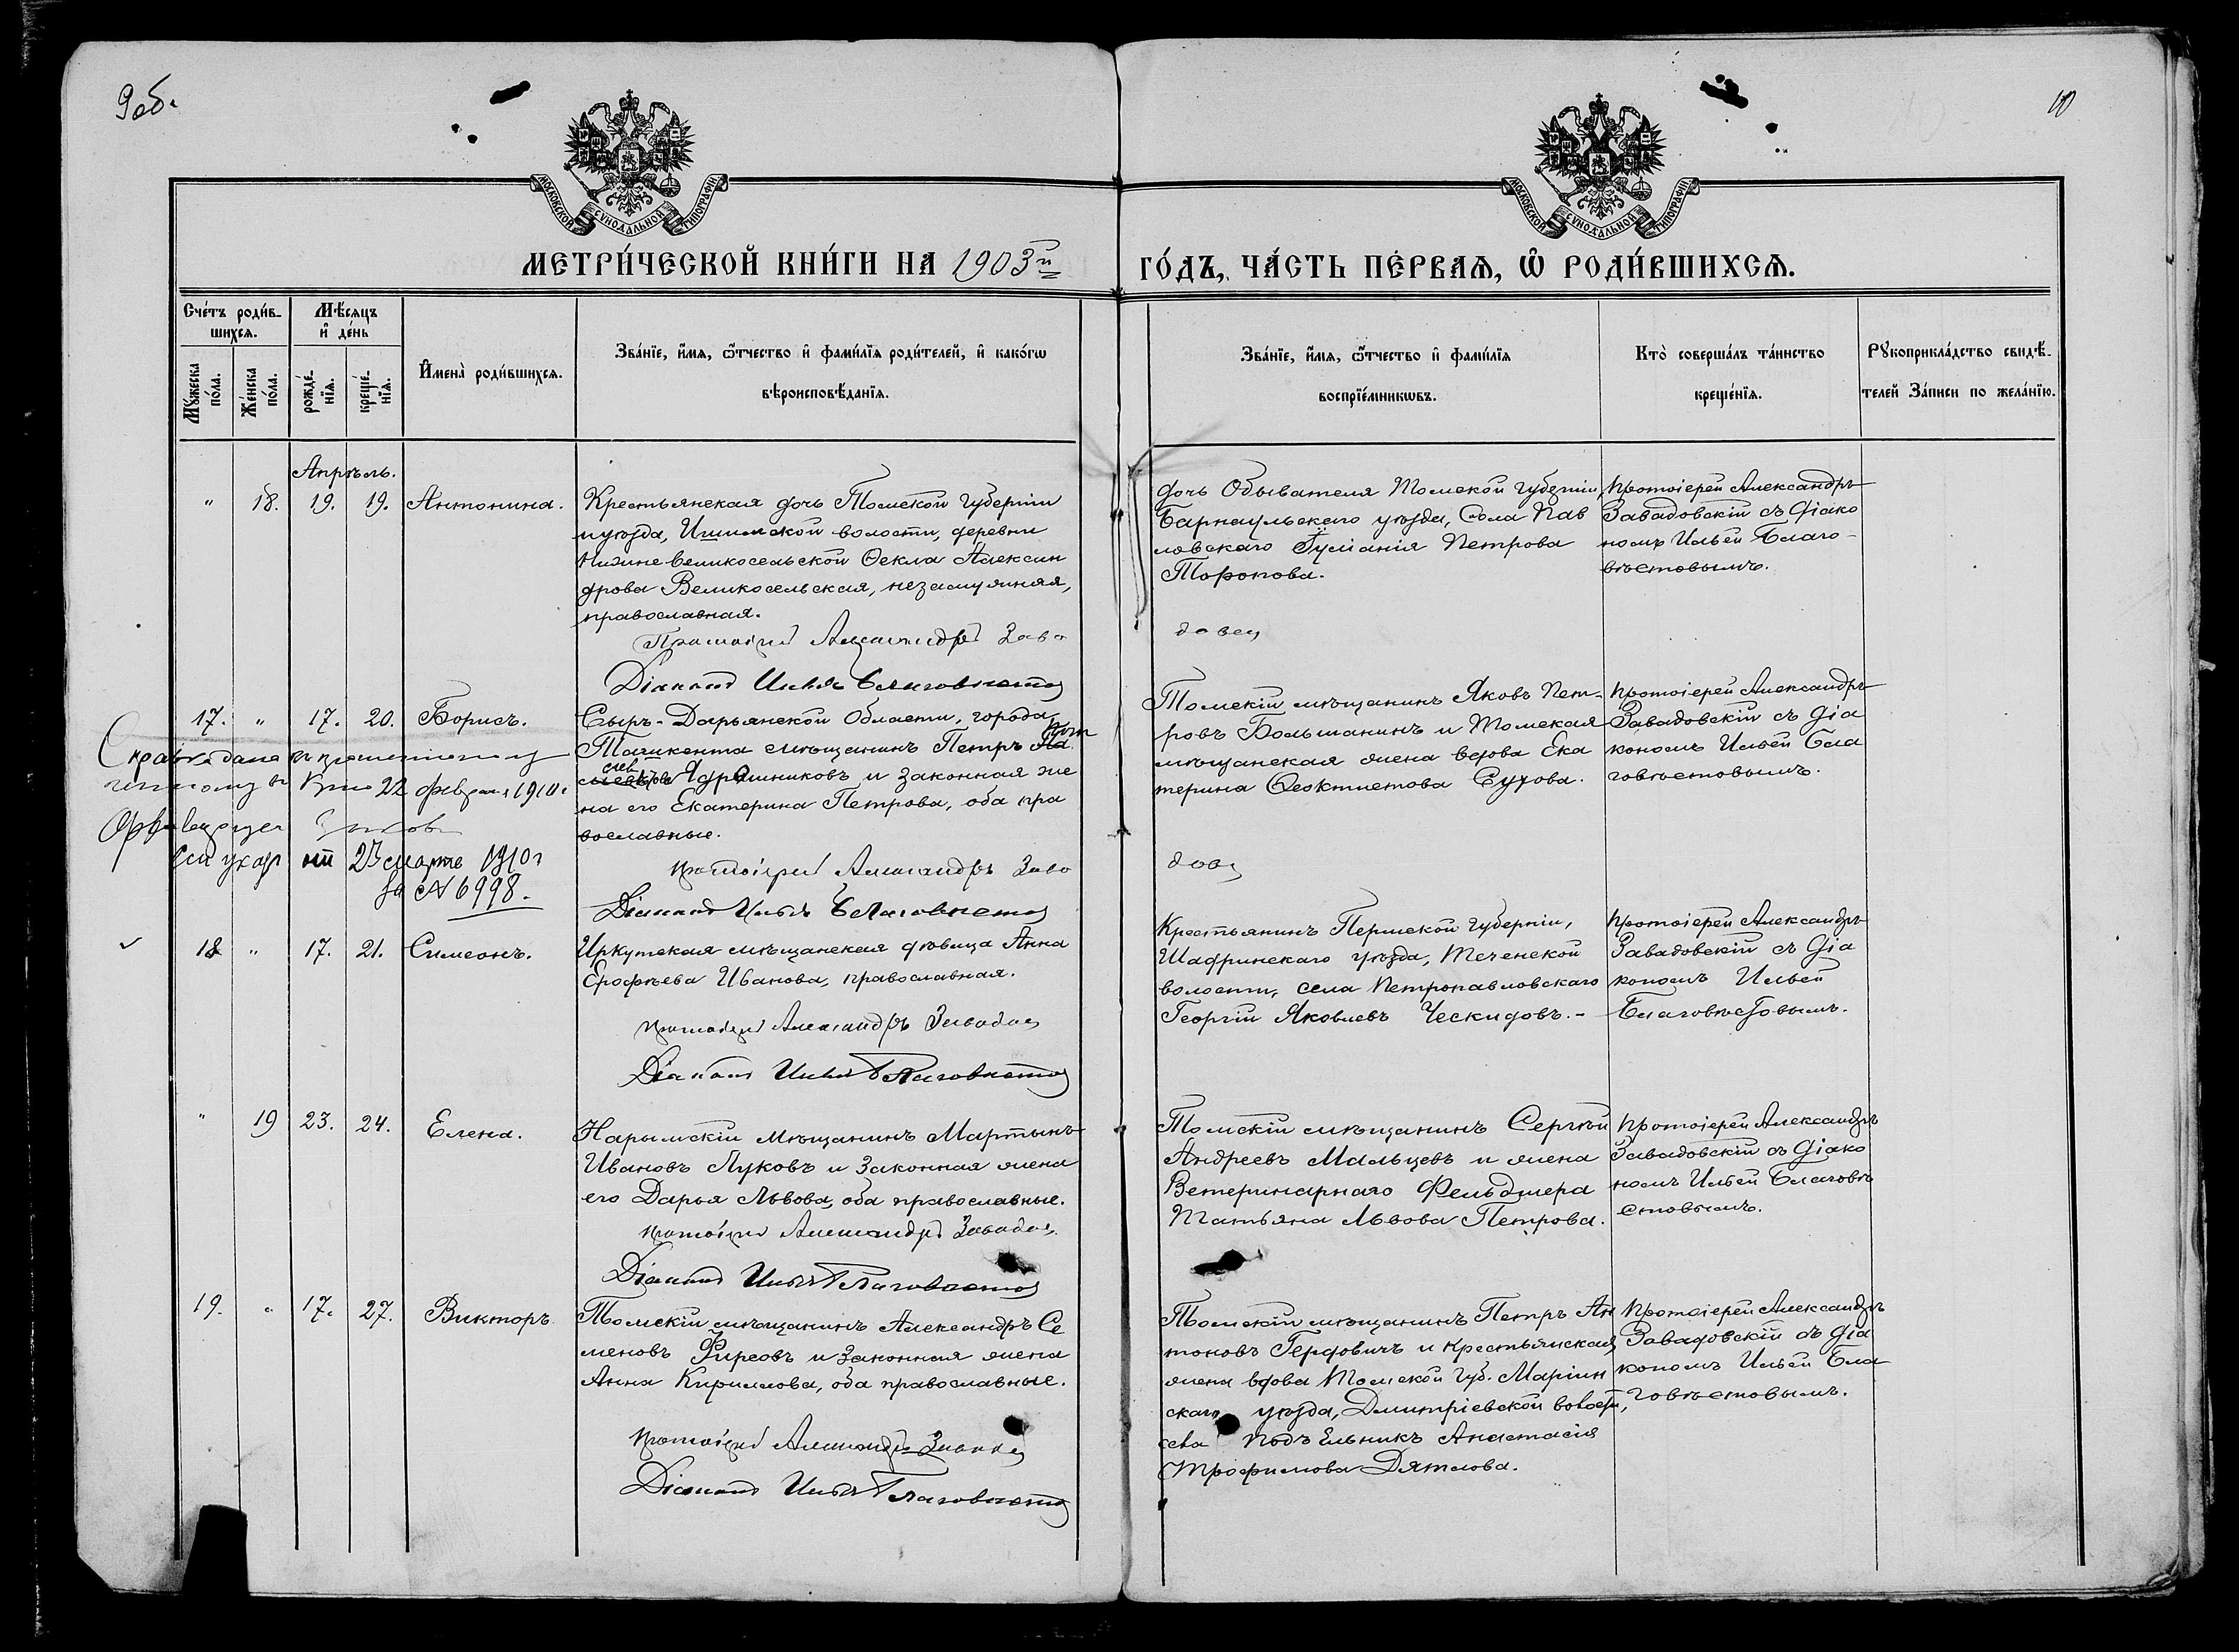 9 об.
10
МОСКОВСКОЙ СѴНОДАЛЬНОЙ ТИПОГРАФІИ
МОСКОВСКОЙ СѴНОДАЛЬНОЙ ТИПОГРАФІИ
МЕТРИ́ЧЕСКОЙ КНИ́ГИ НА 1903й
ГО́ДЪ, ЧА́СТЬ ПЕ́РВАѦ, Ѿ РОДИ́ВШИХСѦ.
Сче́тъ роди́в-
шихсѧ.
Мꙋ́жеска по́ла.
Же́нска по́ла.
Мѣ́сѧцъ
и҆ де́нь
рожде́-
нїѧ.
креще́-
нїѧ.
И҆мена̀ роди́вшихсѧ.
Зва́нїе, и҆́мѧ, ѻ҆́тчество и҆ фами́лїѧ роди́телей, и҆ како́гѡ
вѣроисповѣ́данїѧ.
Зва́нїе, и҆́мѧ, ѻ҆́тчество и҆ фами́лїѧ
воспрїе́мникѡвъ.
Кто̀ соверша́лъ та́инство
креще́нїѧ.
Рꙋкоприкла́дство свидѣ́-
телей за́писи по жела́нїю.
Апрѣль.
" 18. 19. 19. Антонина.
Крестьянская дочь Томской губерніи
и уѣзда, Ишимской волости, деревни
Нижне великосельской Ѳекла Алексан
дрова Великосельская, незамужняя,
православная.
Протоіерей Александръ Заво
Діаконъ Илья Благовѣстов
дочь Обывателя Томской губерніи,
Барнаульскаго уѣзда, Села Пав
ловскаго Іуліанія Петрова
Торопова.
довск
Протоіерей Александръ
Завадовскій съ діако
номъ Ильей Благо-
вѣстовымъ.
17. " 17. 20. Борисъ.
Сыръ-Дарьинской Области, города
Ташкента мѣщанинъ Петръ
Ядрышниковъ и законная же
на его Екатерина Петрова, оба пра
вославные.
Протоіерей Александръ Заво
Діаконъ Илья Благовѣстов
Томскій мѣщанинъ Яковъ Пет-
ровъ Большанинъ и Томская
мѣщанская жена вдова Ека
терина Ѳеоктистова Сухова.
довс
Протоіерей Александръ
Завадовскій съ діа
кономъ Ильей Бла
говѣстовымъ.
Справка дана
22 февраля 1910 г.
от 23 марта 1910 г
за № 6998.
18 " 17. 21. Симеонъ.
Иркутская мѣщанская дѣвица Анна
Ерофѣева Иванова, православная.
Протоіерей Александръ Завадов
Діаконъ Илья Благовѣстов
Крестьянинъ Пермской губерніи,
Шадринскаго уѣзда, Теченской
волости, села Петропавловскаго
Георгій Яковлевъ Ческидовъ.-
Протоіерей Александръ
Завадовскій съ діа
кономъ Ильей
Благовѣстовымъ.
" 19 23. 24. Елена.
Нарымскій мѣщанинъ Мартынъ
Ивановъ Луковъ и законная жена
его Дарья Львова, оба православные.
Протоіерей Александръ Завадов
Діаконъ Илья Благовѣстов
Томскій мѣщанинъ Сергѣй
Андреевъ Мальцевъ и жена
Ветеринарнаго Фельдшера
Татьяна Львова Петрова.
Протоіерей Александръ
Завадовскій съ діако
номъ Ильей Благовѣ
стовымъ.
19. " 17. 27. Викторъ
Томскій мѣщанинъ Александръ Се
меновъ Фирсовъ и законная жена
Анна Кириллова, оба православные.
Протоіерей Александръ
Діаконъ Илья Благовѣстов
Томскій мѣщанинъ Петръ Ан
тоновъ Гердовичъ и крестьянская
жена вдова Томской Губ. Маріин
скаго уѣзда, Дмитріевской волости,
села Подъ Ельникъ Анастасія
Трофимова Дятлова.
Протоіерей Александръ
Завадовскій съ діа
кономъ Ильей Бла
говѣстовымъ.